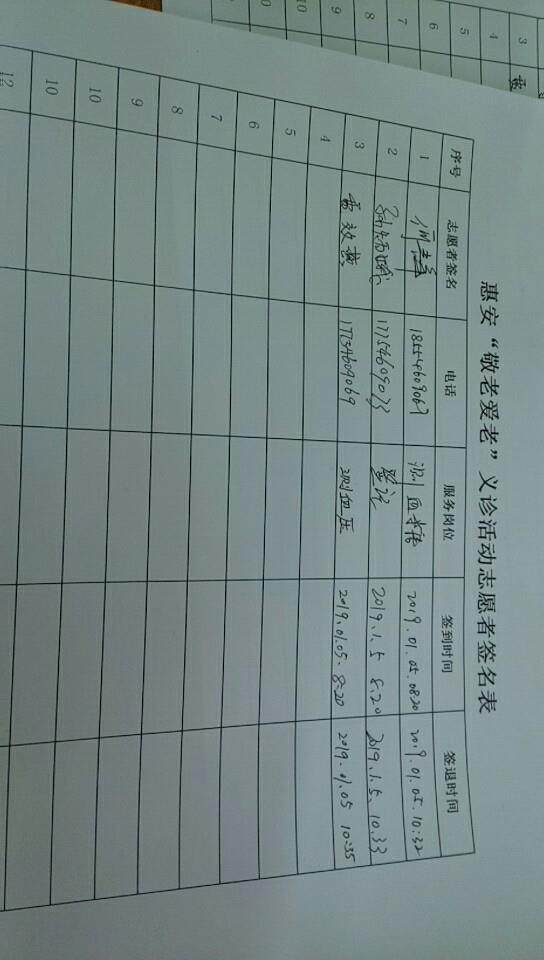 惠安“敬老爱老”义诊活动志愿者签名表
序号 志愿者签名 电话 服务岗位 签到时间 签退时间
1 18554609067 测血糖 2019.01.05.0820 2019.01.05.10:32
2 17754609073 登记 2019.1.5 8:20 2019.1.5. 10:33
3 雷效 17734609069 测血压 2019.01.05. 8:20 2019.01.05 10:35
4
5
6
7
8
9
10
10
12
3
4
5
6
7
8
9
10
10